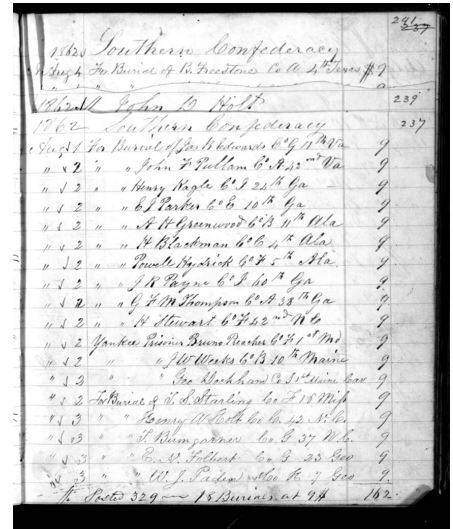 281
237
1862 Southern Confederacy
Aug 4 For Burial of B. Freestone Co A. 4th Texas $ 9
1862 John D Holt 239
1862 Southern Confederacy 237
Aug 1 For Burial of Jas R Edwards Co G 11th Va 9
" 2 " " John F Pullam Co A 42nd Va 9
" 2 " " Henry Kagle Co I 24th Ga 9
" 2 " " E J Parker Co E 10th Ga 9
" 2 " " A H Greenwood Co B 11th Ala 9
" 2 " " H Blackman Co C 4th Ala 9
" 2 " " Powell Hydrick Co F 5th Ala 9
" 2 " " J R Payne Co I 60th Ga 9
" 2 " " G F M Thompson Co A 38th Ga 9
" 2 " " H Stewart Co F 42nd N C 9
" 2 Yankee Prisoner Bruno Reacher Co F 1st Md 9
" 2 " " J W Weeks Co B 10th Maine 9
" 2 " " Geo Dockham Co I 1st Maine Cav 9
" 2 For Burial of T. S. Starling Co F 18 Miss 9
" 3 " " Henry A Holt Co C. 42 N. C. 9
" 3 " " T Bumgarner Co G 37 N. C. 9
" 3 " " Folbert Co G 23 Geo 9
" 3 " " W. J. Paden Co K 7 Geo 9
Posted 329 — 18 Buries at 9$ 162